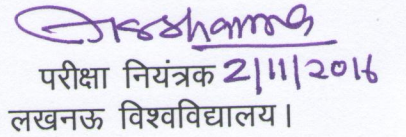 परीक्षा नियंत्रक 2/11/2016
लखनऊ विश्वविद्यालय।